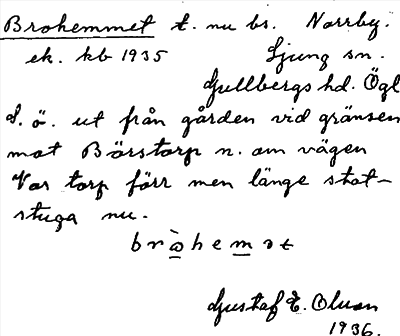 Brohemmet t. nu bs. Norrby.
ek. kb 1935 Ljung sn.
Gullbergs hd. Ögl
S. ö. ut från gården vid gränsen
mot Börstorp n. om vägen
Var torp förr men länge stat-
stuga nu.
bròhemət
Gustaf E. Olson
1936.